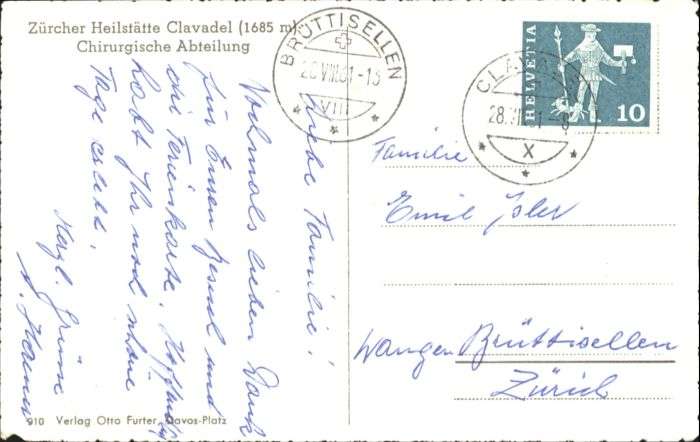 Zürcher Heilstätte Clavadel (1685 m)
Chirurgische Abteilung
BRÜTTISELLEN
28.VIII.61-13
VIII
CLA
28.VIII.61-8
X
HELVETIA
10
Liebe Familie!
Nochmals lieben Dank
für Euren Besuch und
die Ferienkarte. Hoffentlich
habt Ihr noch schöne
Tage erlebt.
Herzl. Grüsse
Familie
Emil Isler
Wangen Brüttisellen
Zürich
910 Verlag Otto Furter, Davos-Platz